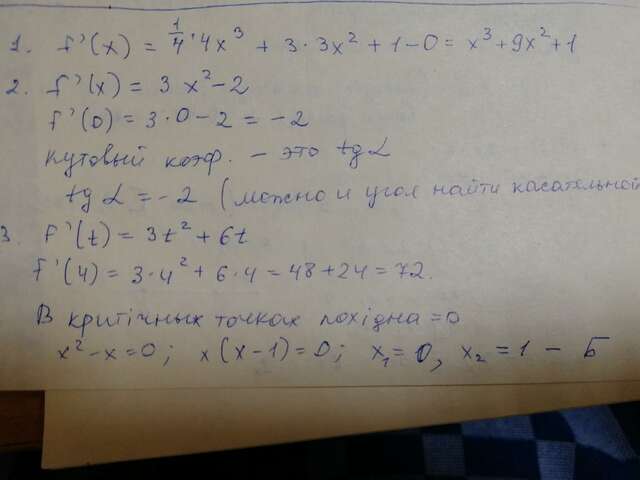 1. f'(x) = 1/4 · 4x³ + 3·3x² + 1 - 0 = x³ + 9x² + 1
2. f'(x) = 3x² - 2
f'(0) = 3·0 - 2 = -2
Кутовый коэф. - это tg α
tg α = -2 (можно и угол найти касательной
3. f'(t) = 3t² + 6t
f'(4) = 3·4² + 6·4 = 48 + 24 = 72.
В критічных точках похідна = 0
x² - x = 0; x(x - 1) = 0; x₁ = 0, x₂ = 1 - Б